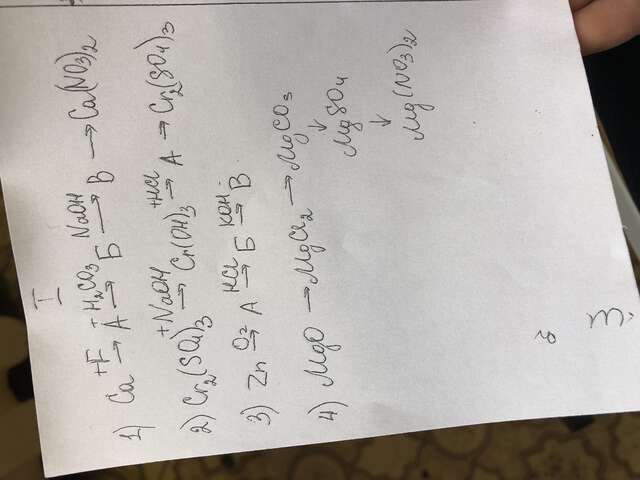 I
1) Ca +F → А + H₂CO₃ → Б NaOH → В → Ca(NO₃)₂
2) Cr₂(SO₄)₃ +NaOH → Cr(OH)₃ +HCl → А → Cr₂(SO₄)₃
3) Zn O₂ → А HCl → Б KOH → В
4) MgO → MgCl₂ → MgCO₃
↓
MgSO₄
↓
Mg(NO₃)₂